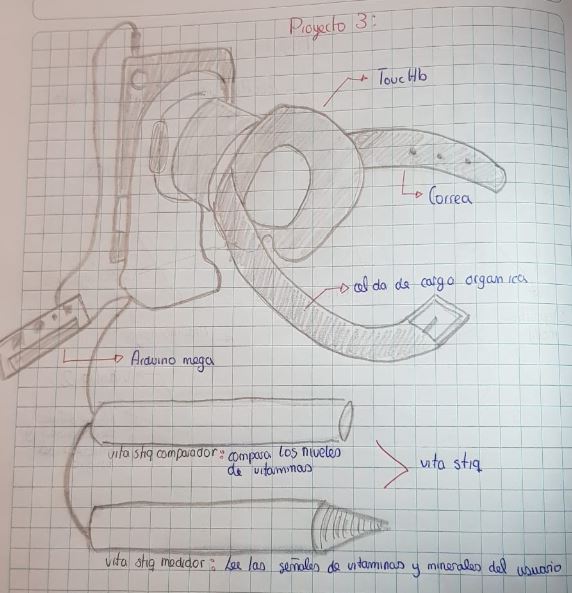 Proyecto 3:
ToucHb
Correa
celda de cargo organica
Arduino mega
vita stiq comparador: compara los niveles
de vitaminas
vita stiq
vita stiq medidor: Lee las señales de vitaminas y minerales del usuario